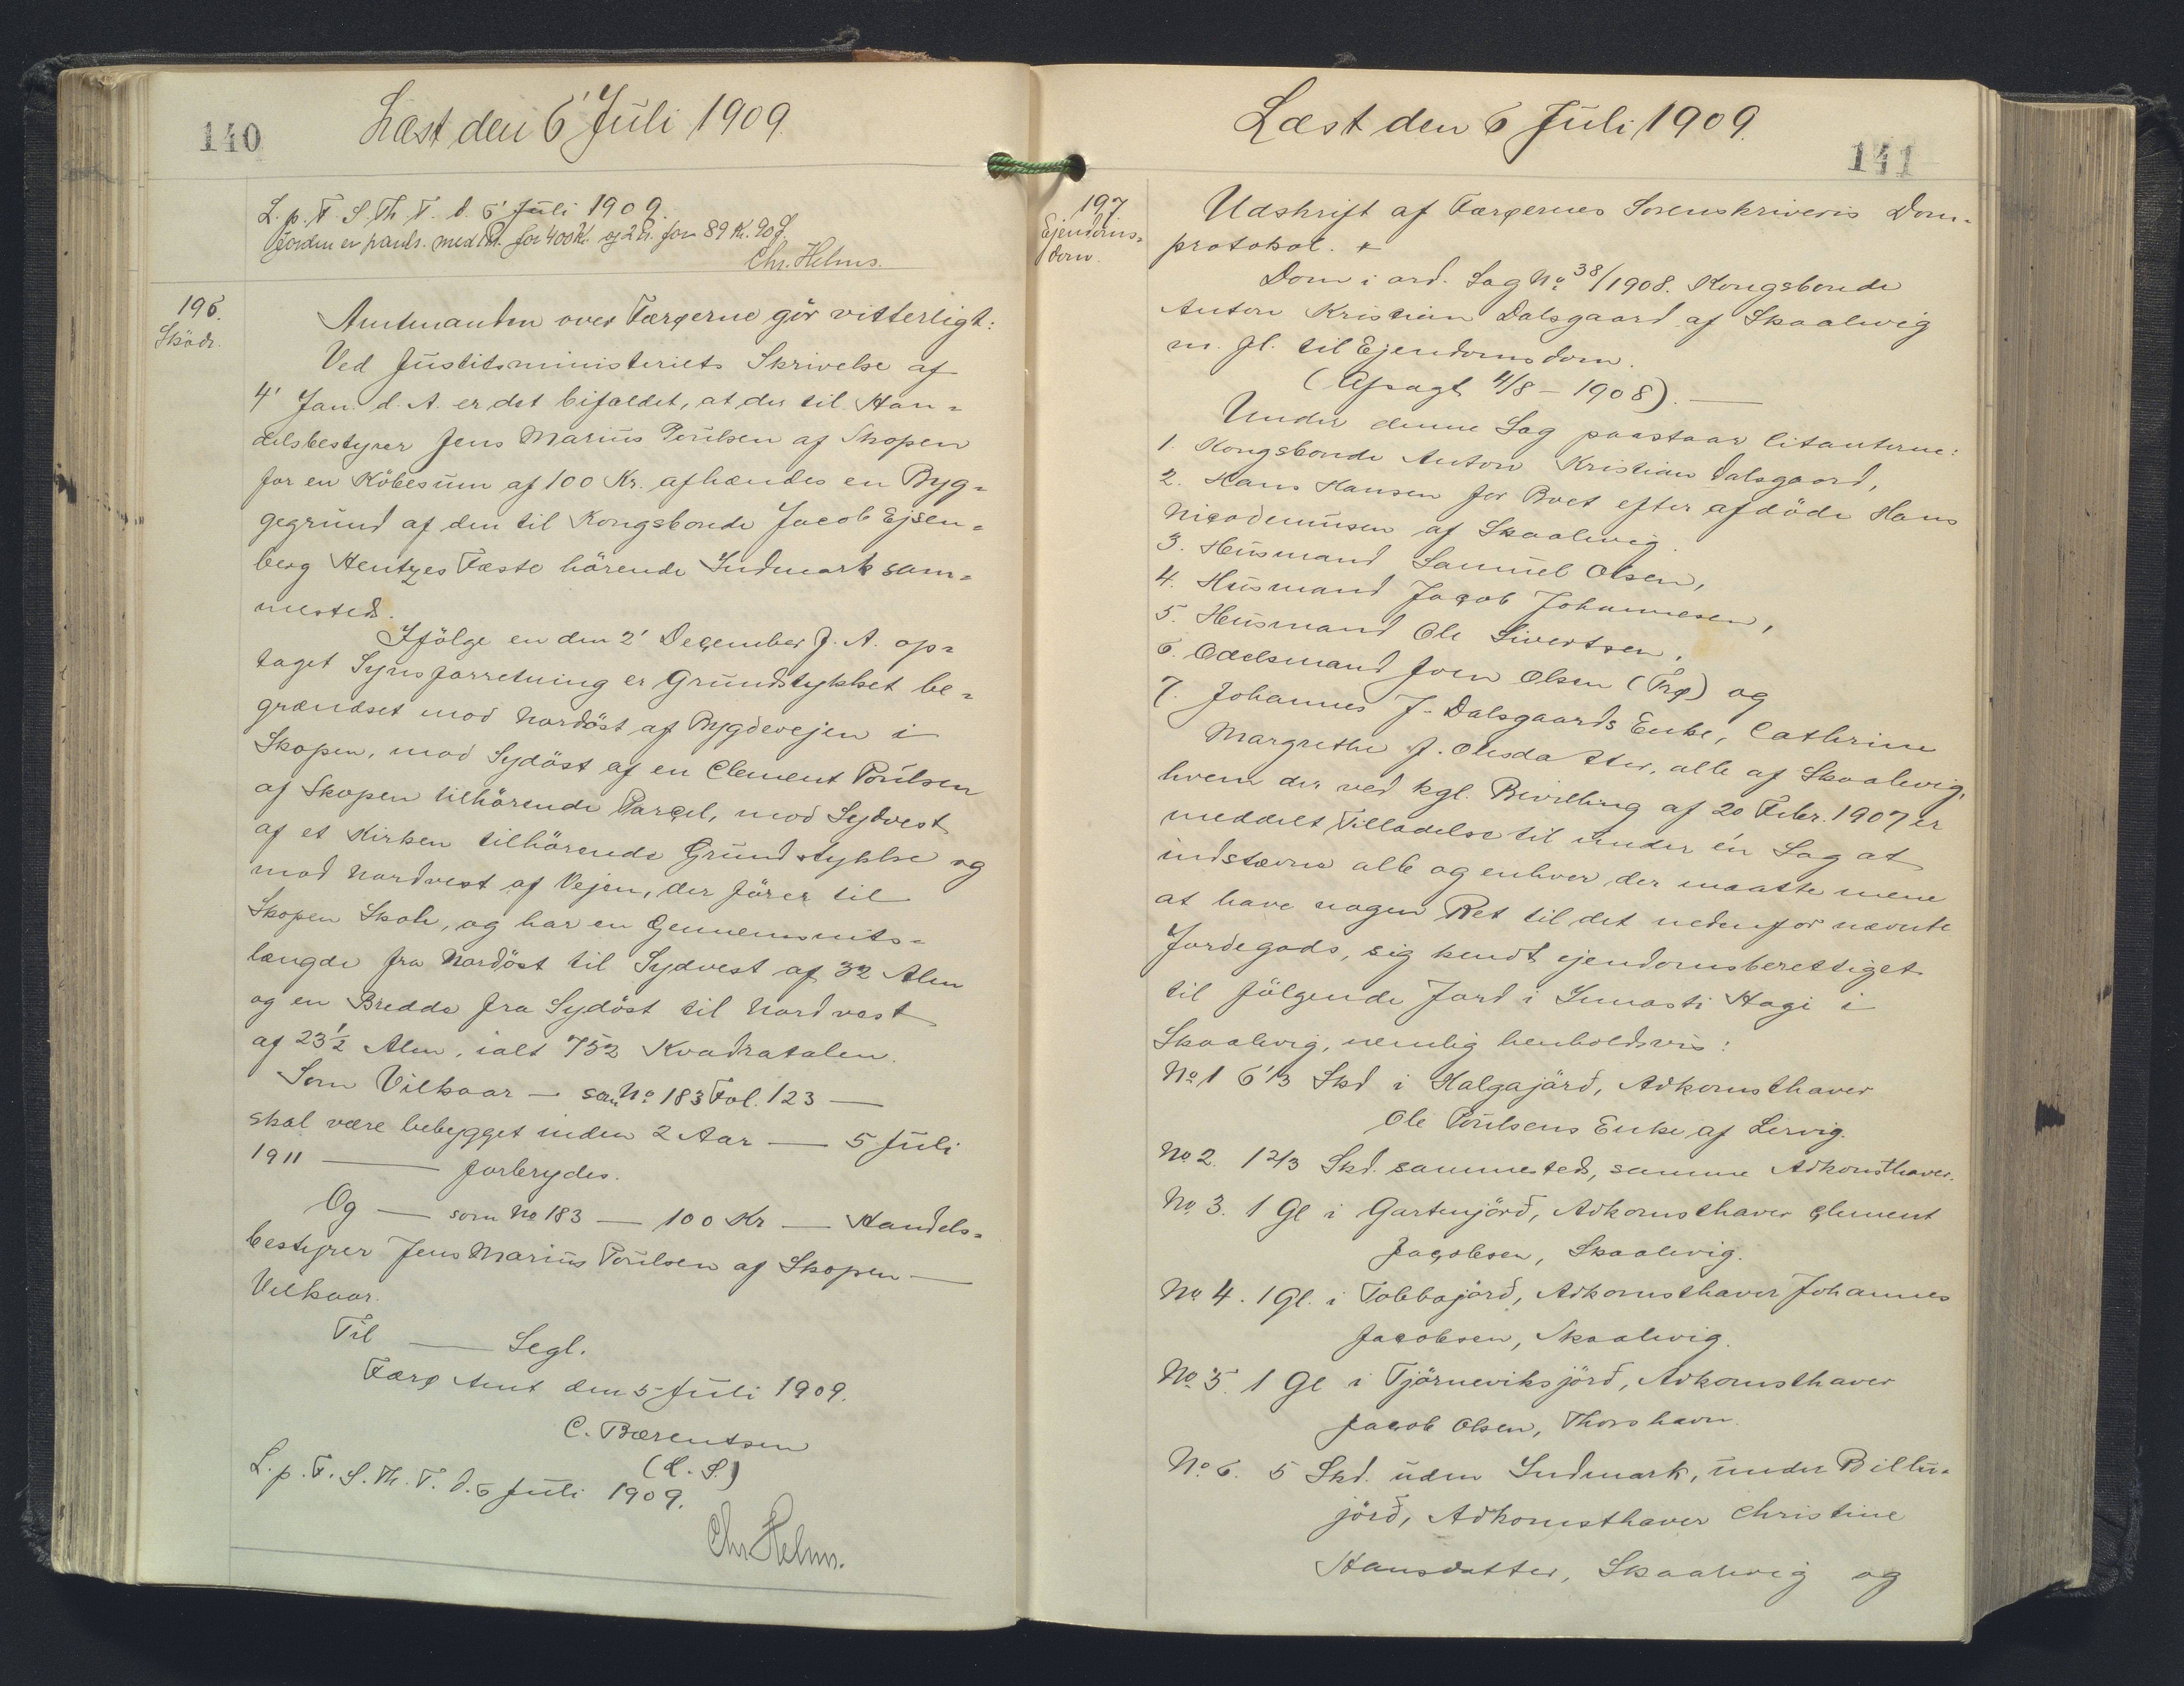 140
Læst den 6' Juli 1909.
L. p. F. S. Th. T. d. 6' Juli 1909.
Jorden er pants. med Pr. for 400 Kr. og 2 Pr. for 89 Kr. 90 Ø.
Chr. Helms.
196.
Sköde.
Amtmanden over Færøerne gör vitterligt:
Ved Justitsministeriets Skrivelse af
4' Jan. d. A. er det bifaldet, at der til Han=
delsbestyrer Jens Marius Poulsen af Skopen
for en Köbesum af 100 Kr. afhændes en Byg=
gegrund af den til Kongsbonde Jacob Ejsen=
berg Hentzes Fæste hörende Indmark sam=
mesteds.
Ifölge en den 2' December f. A. op=
taget Synsforretning er Grundstykket be=
grændset mod Nordöst af Bygdevejen i
Skopen, mod Sydöst af en Clement Poulsen
af Skopen tilhörende Parcel, mod Sydvest
af et Kirken tilhörende Grundstykke og
mod Nordvest af Vejen, der förer til
Skopen Skole, og har en Gennemsnits=
længde fra Nordöst til Sydvest af 32 Alen
og en Bredde fra Sydöst til Nordvest
af 23½ Alen, ialt 752 Kvadratalen.
Som Vilkaar — som No 183 Fol. 123 —
skal være bebygget inden 2 Aar — 5 Juli
1911 — forbrydes.
Og — som No 183 — 100 Kr — Handels=
bestyrer Jens Marius Poulsen af Skopen —
Vilkaar.
Til — Segl.
Færø Amt den 5 Juli 1909.
C. Bærentsen
(L. S.)
L. p. F. S. Th. T. d. 6 Juli 1909.
Chr. Helms.
Læst den 6 Juli 1909.
141
197
Ejendoms=
dom.
Udskrift af Færøernes Sorenskriveris Dom=
protokol.
Dom i ord. Sag No 38/1908. Kongsbonde
Anton Kristian Dalsgaard af Skaalevig
m. fl. til Ejendomsdom.
(Afsagt 4/8 - 1908). —
Under denne Sag paastaar Citanterne:
1. Kongsbonde Anton Kristian Dalsgaard,
2. Hans Hansen for Boet efter afdöde Hans
Nicodemussen af Skaalevig.
3. Husmand Samuel Olsen,
4. Husmand Jacob Johannesen,
5. Husmand Ole Sivertsen,
6. Odelsmand Joen Olsen (Trø) og
7. Johannes J. Dalsgaards Enke, Cathrine
Margrethe f. Olesdatter, alle af Skaalevig,
hvem der ved kgl. Bevilling af 20 Febr. 1907 er
meddelt Tilladelse til under én Sag at
indstævne alle og enhver der maatte mene
at have nogen Ret til det nedenfor nævnte
Jordegods, sig kendt ejendomsberettiget
til fölgende Jord i Innasti Hagi i
Skaalevig, nemlig henholdsvis:
No 1 6 1/3 Skd i Halgajörd, Adkomsthaver
Ole Poulsens Enke af Lervig.
No 2. 1 2/3 Skd. sammesteds, samme Adkomsthaver.
No 3. 1 Gl i Gartenjörd, Adkomsthaver Clement
Jacobsen, Skaalevig.
No 4. 1 Gl. i Tobbajörd, Adkomsthaver Johannes
Jacobsen, Skaalevig.
No 5. 1 Gl i Tjörneviksjörd, Adkomsthaver
Jacob Olsen, Thorshavn.
No 6. 5 Skd. uden Indmark, under Billu=
jörd, Adkomsthaver Christine
Hansdatter, Skaalevig og